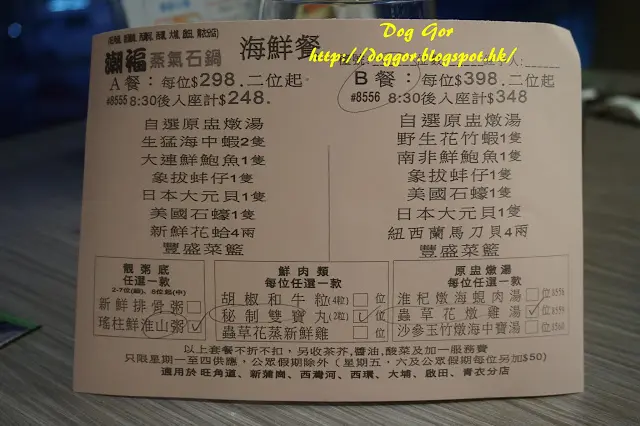 Dog Gor
http://doggor.blogspot.hk/
潮福 蒸氣石鍋 海鮮餐
A餐：每位$298. 二位起
#8556 8:30後入座計$248.
B餐：每位$398. 二位起
#8556 8:30後入座計$348
自選原盅燉湯
生猛海中蝦2隻
大連鮮鮑魚1隻
象拔蚌仔1隻
日本大元貝1隻
美國石蠔1隻
新鮮花蛤4兩
豐盛菜籃
自選原盅燉湯
野生花竹蝦1隻
南非鮮鮑魚1隻
象拔蚌仔1隻
美國石蠔1隻
日本大元貝1隻
紐西蘭馬刀貝4兩
豐盛菜籃
靚粥底
任選一款
新鮮排骨粥
瑤柱鮮淮山粥
鮮肉類
每位任選一款
胡椒和牛粒(4粒) 位
秘制雙寶丸(2粒) 位
蟲草花蒸新鮮雞 位
原盅燉湯
每位任選一款
淮杞燉海蜆肉湯 位
蟲草花燉雞湯 位
沙參玉竹燉海中寶湯 位
以上套餐不折不扣，另收茶芥，醬油，酸菜及加一服務費
只限星期一至四供應，公眾假期除外（星期五，六及公眾假期每位另加$50）
適用於旺角道、新蒲崗、西灣河、西環、大埔、啟田、青衣分店